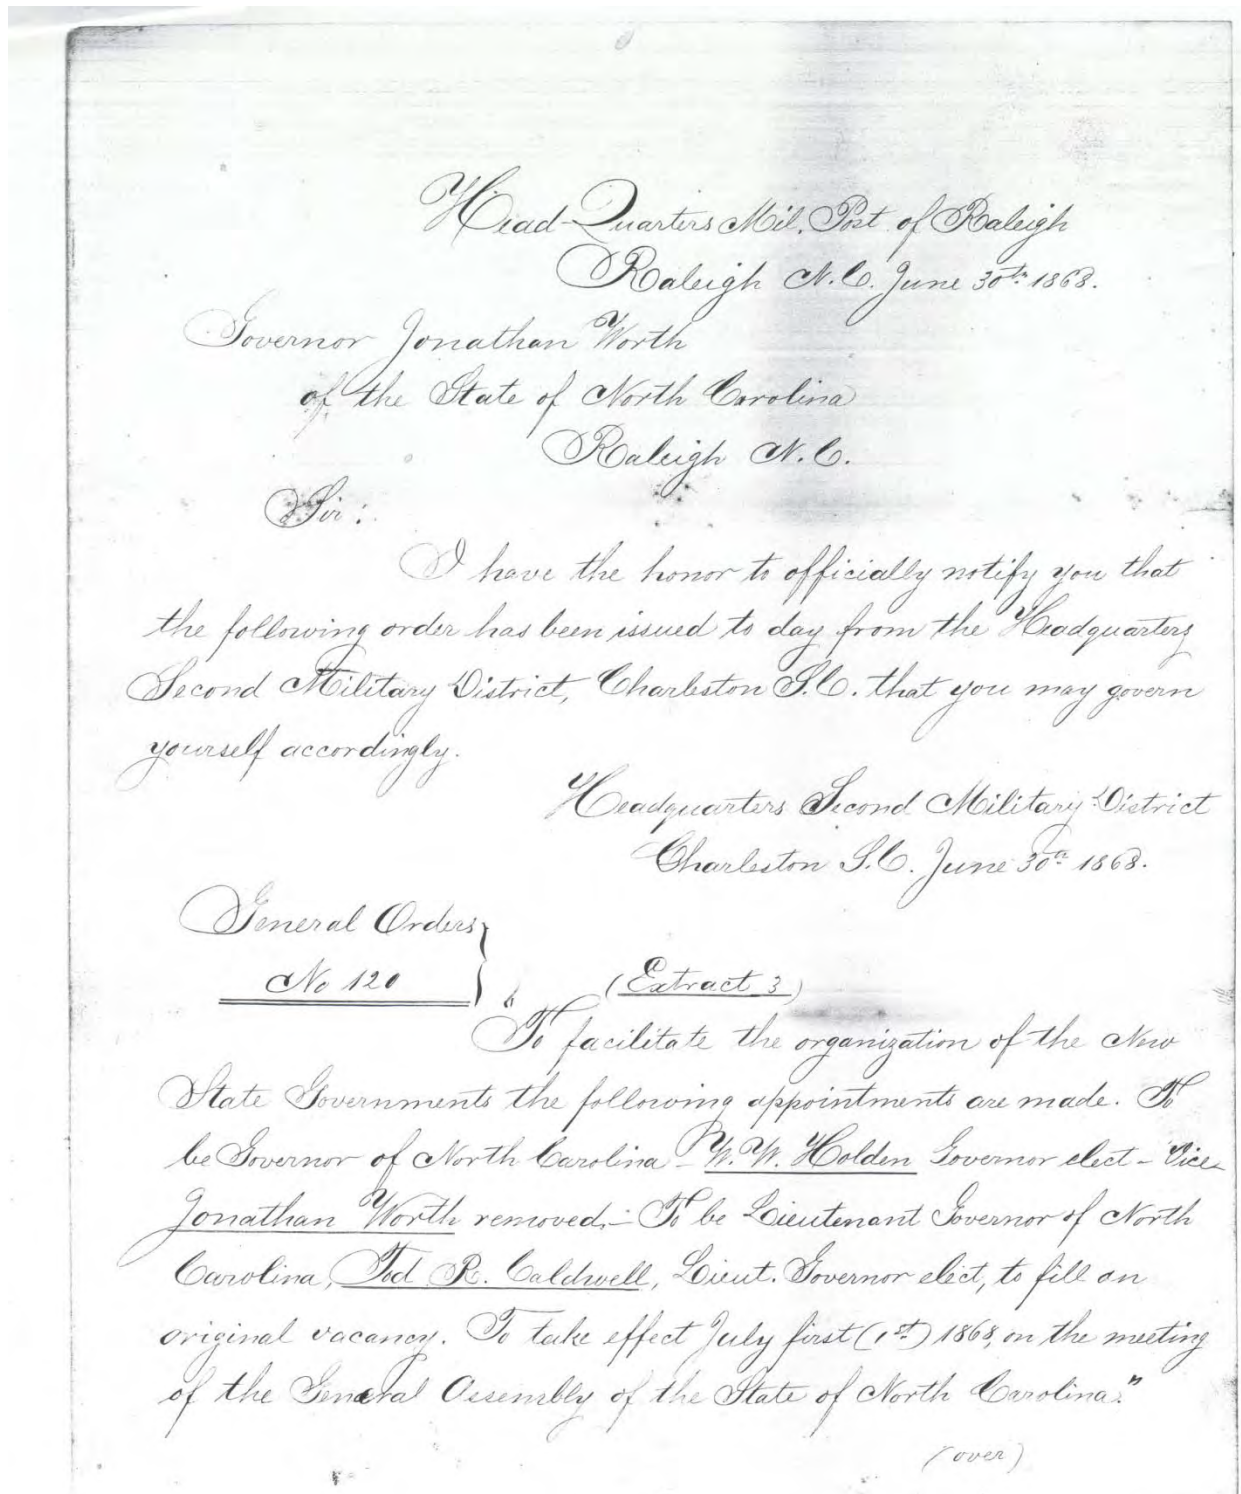 Head-Quarters Mil. Post of Raleigh
Raleigh N.C. June 30th 1868.
Governor Jonathan Worth
of the State of North Carolina
Raleigh N.C.
Sir:
I have the honor to officially notify you that
the following order has been issued to day from the Headquarters
Second Military District, Charleston S.C. that you may govern
yourself accordingly.
Headquarters Second Military District
Charleston S.C. June 30th 1868.
General Orders
No 120
(Extract 3)
"To facilitate the organization of the New
State Governments the following appointments are made. To
be Governor of North Carolina - W. W. Holden Governor elect - Vice
Jonathan Worth removed. - To be Lieutenant Governor of North
Carolina, Tod R. Caldwell, Lieut. Governor elect, to fill an
original vacancy. To take effect July first (1st) 1868, on the meeting
of the General Assembly of the State of North Carolina."
(over)